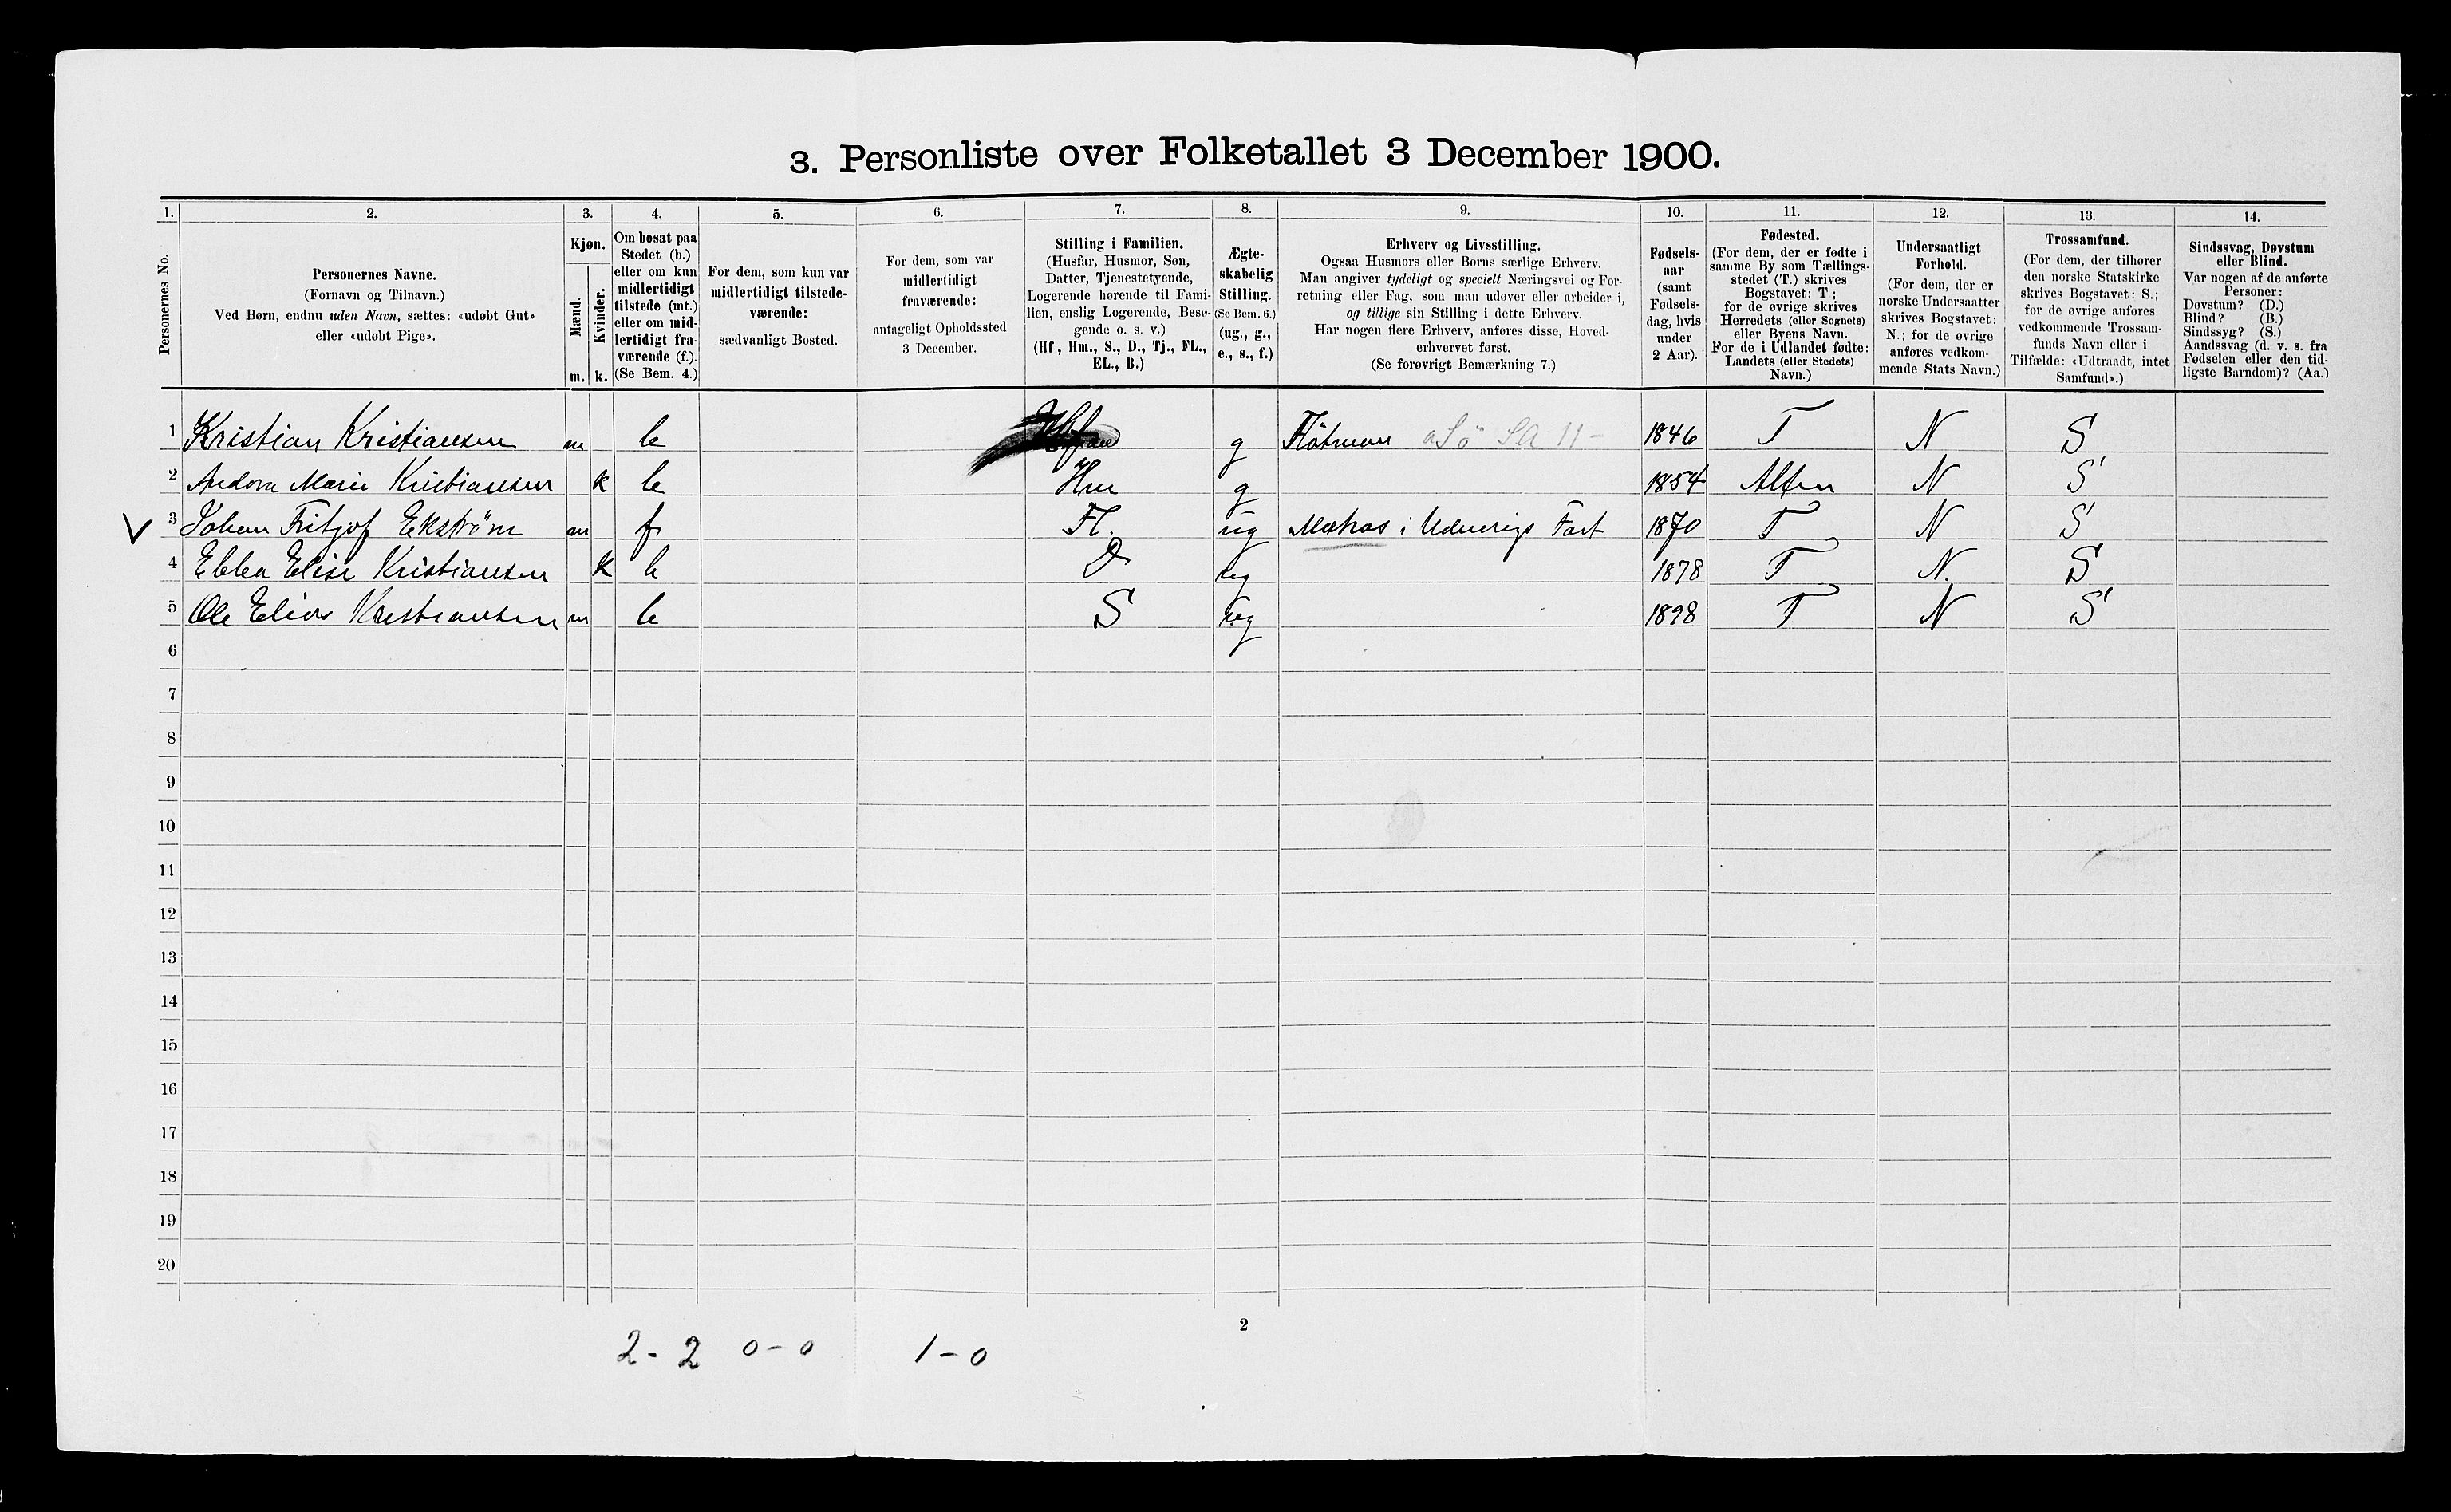 3. Personliste over Folketallet 3 December 1900.
1. 2. 3. 4. 5. 6. 7. 8. 9. 10. 11. 12. 13. 14.
Personernes No.
Personernes Navne.
(Fornavn og Tilnavn.)
Ved Børn, endnu uden Navn, sættes: «udøbt Gut»
eller «udøbt Pige».
Kjøn.
Mænd.
Kvinder.
m. k.
Om bosat paa
Stedet (b.)
eller om kun
midlertidigt
tilstede (mt.)
eller om mid-
lertidigt fra-
værende (f.).
(Se Bem. 4.)
For dem, som kun var
midlertidigt tilstede-
værende:
sædvanligt Bosted.
For dem, som var
midlertidigt
fraværende:
antageligt Opholdssted
3 December.
Stilling i Familien.
(Husfar, Husmor, Søn,
Datter, Tjenestetyende,
Logerende hørende til Fami-
lien, enslig Logerende, Besø-
gende o. s. v.)
(Hf, Hm., S., D., Tj., FL.,
EL., B.)
Ægte-
skabelig
Stilling.
(Se Bem. 6.)
(ug., g.,
e., s., f.)
Erhverv og Livsstilling.
Ogsaa Husmors eller Børns særlige Erhverv.
Man angiver tydeligt og specielt Næringsvei og For-
retning eller Fag, som man udøver eller arbeider i,
og tillige sin Stilling i dette Erhverv.
Har nogen flere Erhverv, anføres disse, Hoved-
erhvervet først.
(Se forøvrigt Bemærkning 7.)
Fødsels-
aar
(samt
Fødsels-
dag, hvis
under
2 Aar).
Fødested.
(For dem, der er fødte i
samme By som Tællings-
stedet (T.) skrives
Bogstavet: T;
for de øvrige skrives
Herredets (eller Sognets)
eller Byens Navn.
For de i Udlandet fødte:
Landets (eller Stedets)
Navn.)
Undersaatligt
Forhold.
(For dem, der er
norske Undersaatter
skrives Bogstavet:
N.; for de øvrige
anføres vedkom-
mende Stats Navn.)
Trossamfund.
(For dem, der tilhører
den norske Statskirke
skrives Bogstavet: S.;
for de øvrige anføres
vedkommende Trossam-
funds Navn eller i
Tilfælde: «Udtraadt, intet
Samfund».)
Sindssvag, Døvstum
eller Blind.
Var nogen af de anførte
Personer:
Døvstum? (D.)
Blind? (B.)
Sindssyg? (S.)
Aandssvag (d. v. s. fra
Fødselen eller den tid-
ligste Barndom)? (Aa.)
1 Kristian Kristiansen m b g Flötman 1846 T N S
2 Andora Marie Kristiansen k b Hm g 1854 Alten N S
V 3 Johan Fritjof Ekström m f. Fl. ug Matros i Udenrigs Fart 1870 T N S
4 Ebba Elise Kristiansen k b D ug 1878 T N. S
5 Ole Elias Kristiansen m b S ug 1898 T N S
6
7
8
9
10
11
12
13
14
15
16
17
18
19
20
2
2 - 2 0 - 0 1 - 0